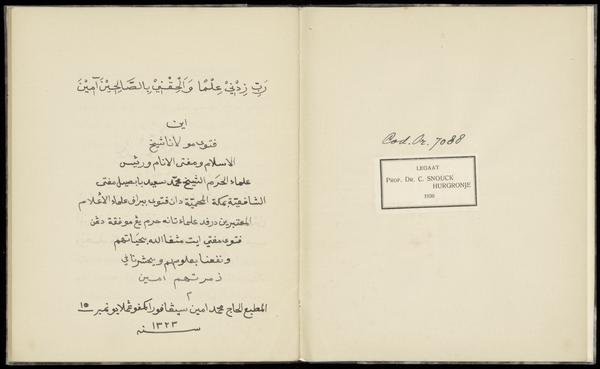 رَبِّ زِدْنِيْ عِلْمًا وَأَلْحِقْنِيْ بِالصَّالِحِيْنَ آمِيْنَ
اين
فتوى مولانا شيخ
الاسلام ومفتى الانام ورئيس
علماء الحرم الشيخ محمد سعيد بابصيل مفتى
الشافعية بمكة المحمية دان فتوى ببراف علماء الاعلام
المعتبرين درفد علماء تانه حرم يڠ موفقة دڠن
فتوى مفتي ايت متعنا الله بحياتهم
ونفعنا بعلومهم ويحشرنا في
زمرتهم امين
م
المطبع الحاج محمد امين سيڠافورا كمفوڠ ملايو نمبر ١٥
سنه ١٣٢٣
Cod. Or. 7088
LEGAAT
PROF. DR. C. SNOUCK
HURGRONJE
1936